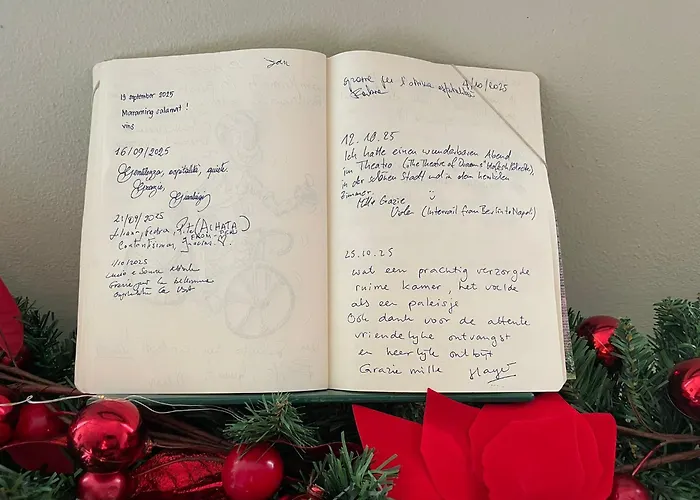 Jau
13 september 2025
Maraming salamat !
vins
16/09/2025
Gentilezza, ospitalità, quiete.
Grazie,
Gianluigi
21/09/2025
(ALHATA)
FROM
1/10/2025
Lucio e Sonia
Grazie per la bellissima
ospitalità
Grazie per l'ottima ospitalità 4/10/2025
12.10.25
Ich hatte einen wunderbaren Abend
im Theatro (The Theatre of Dreams
in der schönen Stadt und in dem herrlichen
Zimmer.
Mille Grazie
(Interrail from Berlin to Napoli)
25.10.25
wat een prachtig verzorgde
ruime kamer, het voelde
als een paleisje
Ook dank voor de attente
vriendelijke ontvangst
en heerlijk ontbijt
Grazie mille